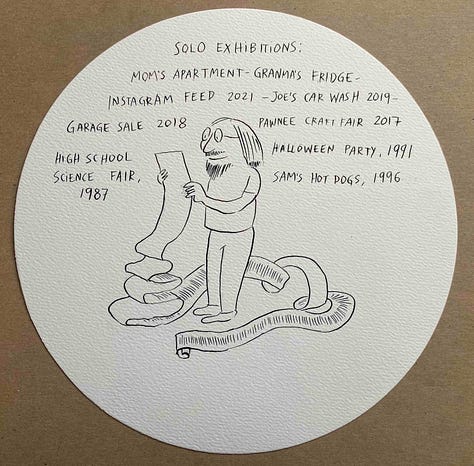 SOLO EXHIBITIONS:
MOM'S APARTMENT - GRANMA'S FRIDGE -
INSTAGRAM FEED 2021 - JOE'S CAR WASH 2019 -
GARAGE SALE 2018 PAWNEE CRAFT FAIR 2017
HIGH SCHOOL
SCIENCE FAIR,
1987
HALLOWEEN PARTY, 1991
SAM'S HOT DOGS, 1996